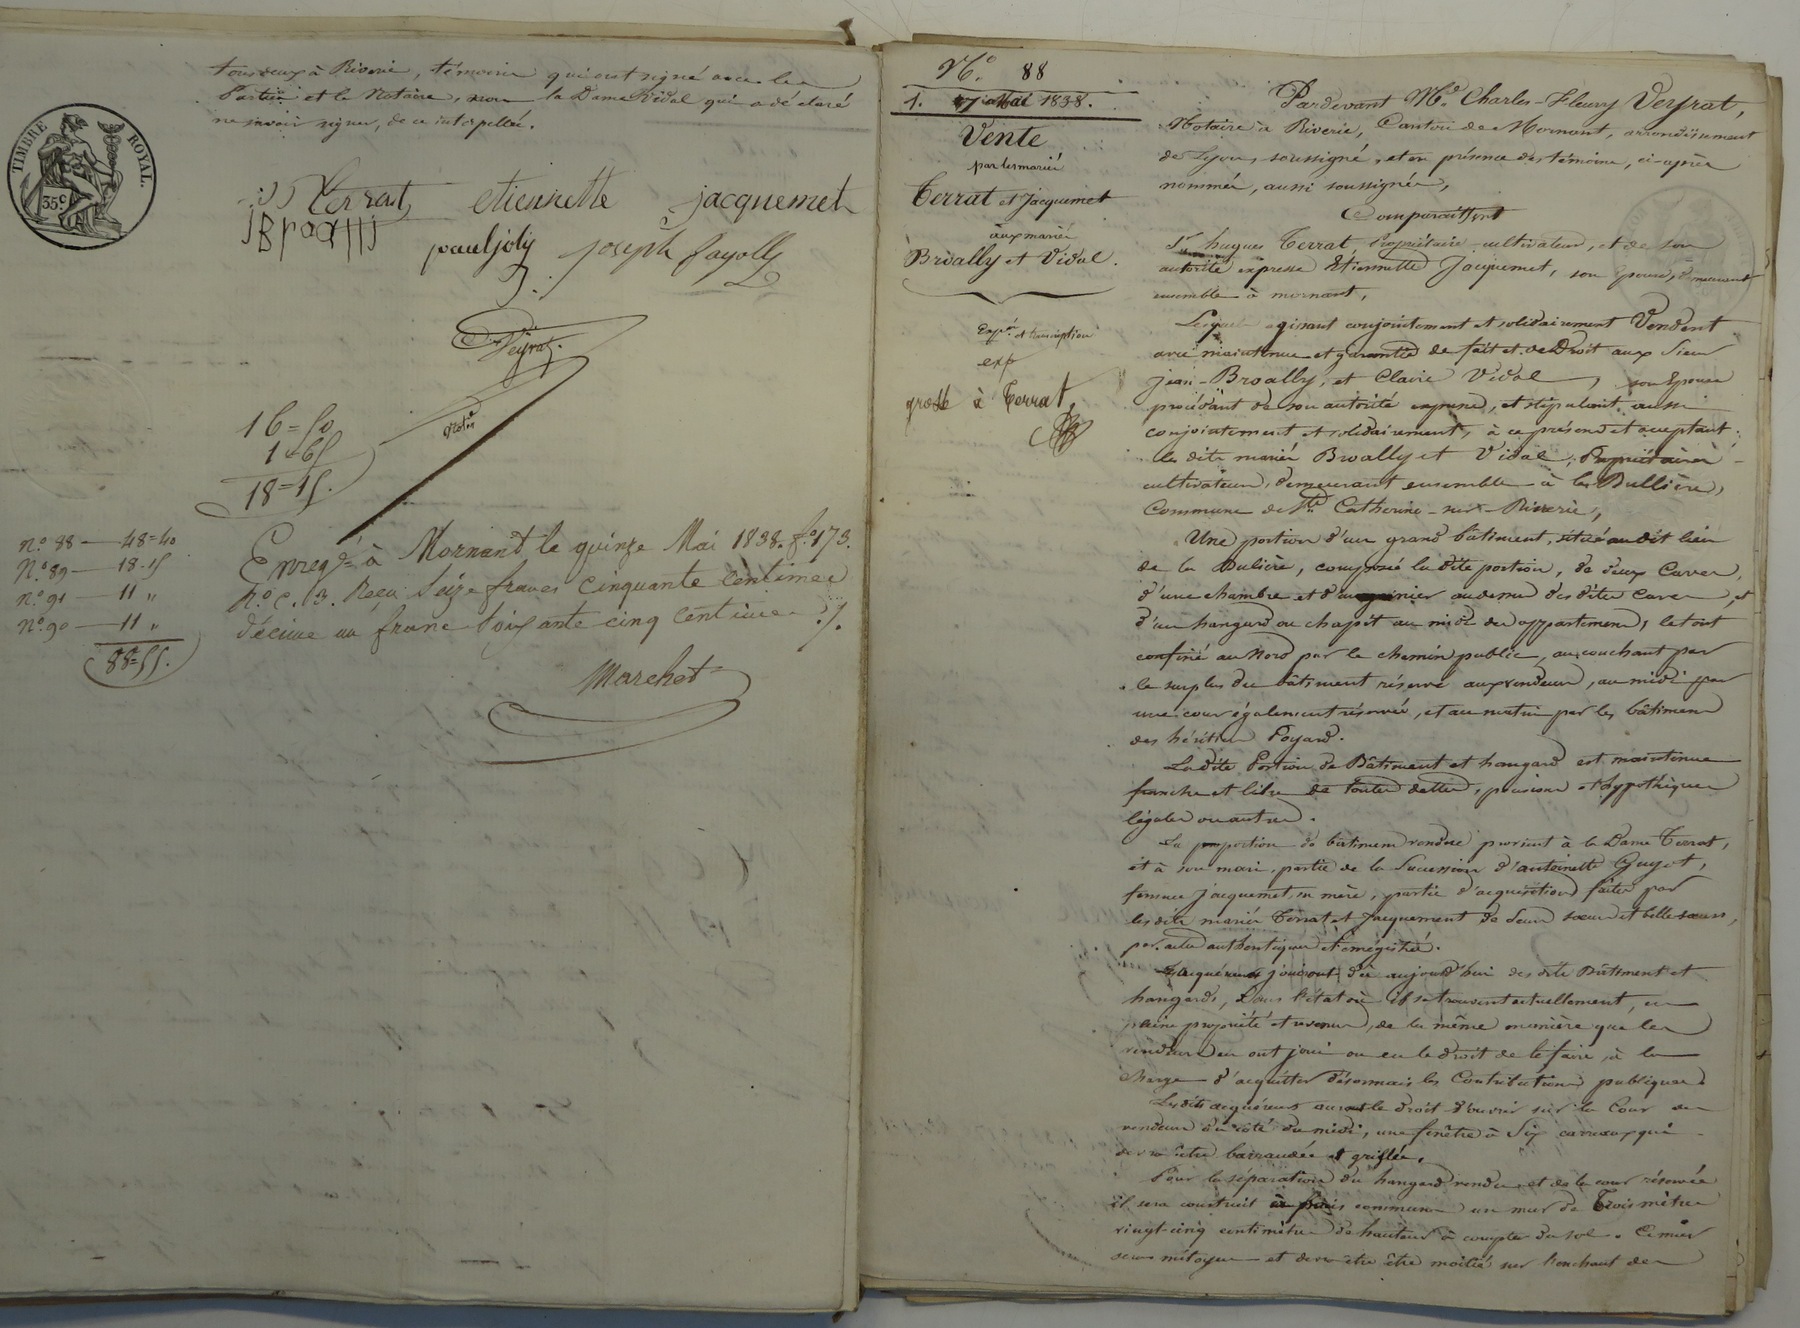 tous deux à Riverie, témoins qui ont signé avec les
Parties et le Notaire, non la Dame Vidal qui a déclaré
ne savoir signer, de ce interpellée.
TIMBRE ROYAL.
35c
Terrat etiennette jacquemet
pauljoly joseph fayolle
Veyrat
Notre
16=50
1=65
18=15.
n.o 88 — 48=40
N.o 89 — 18.15
n.o 91 — 11 "
N.o 90 — 11 "
88=55.
Enregé à Mornant le quinze Mai 1838. fo. 173.
No. C. 3. Reçu Seize francs cinquante centimes
décime un franc soixante cinq centimes ./.
Marchot
No. 88
1. Mai 1838.
Vente
par les mariés
Terrat et Jacquemet
aux mariés
Broally et Vidal.
Expon et transcription
exp
grosse à Terrat,
Pardevant Me. Charles-Fleury Veyrat,
Notaire à Riverie, Canton de Mornant, arrondissement
de Lyon, soussigné, et en présence des témoins, ci-après
nommés, aussi soussignés,
Comparaissent
Sr. hugues Terrat, Propriétaire-cultivateur, et de son
autorité expresse Etiennette Jacquemet, son Epouse, demeurant
ensemble à mornant,
Lesquels agissant conjointement et solidairement Vendent
avec maintenue et garantie de fait et de Droit aux Sieur
jean-Broally, et Claire Vidal, son Epouse
procédant de son autorité expresse, et stipulant aussi
conjointement et solidairement, à ce présens et acceptant:
les dits mariés Broally et Vidal, Propriétaires
cultivateurs, demeurant ensemble à la Bullière,
Commune de Ste. Catherine-sur-Riverie,
Une portion d'un grand bâtiment, situé au dit lieu
de la Bulière, composée la dite portion, de deux Caves,
d'une chambre et d'un grenier audessus des dites Caves, et
d'un hangard ou chapit au midi des appartemens, le tout
confiné au Nord par le chemin public, au couchant par
le surplus du bâtiment réservé aux vendeurs, au midi par
une cour également réservée, et au matin par les bâtimens
des héritiers Foyard.
La dite Portion de Bâtiment et hangard est maintenue
franche et libre de toutes dettes, pensions et hypothèques
légales ou autres.
La portion de bâtimens vendue provient à la Dame Terrat,
et à son mari, partie de la Succession d'antoinette Guyot,
femme jacquemet, sa mère, partie d'acquisitions faites par
les dits mariés Terrat et Jacquement de leurs soeurs et belle soeurs,
par actes authentiques et enregistrés.
Les acquéreurs jouiront dès aujourd'hui des dits Bâtiment et
hangards, Dans l'état où ils se trouvent actuellement, en
pleine propriété et revenus, de la même manière que les
vendeurs en ont joui ou eu le droit de le faire, à la
charge d'acquitter désormais les Contributions publiques
Les dits acquéreurs auront le droit d'ouvrir sur la Cour des
vendeurs du côté du midi, une fenêtre à Six carreaux qui
devra être barraudée et grillée.
Pour la séparation du hangard vendu et de la cour réservée
il sera construit à frais communs un mur de Trois mètres
vingt-cinq centimètres de hauteur à compter du sol. Ce mur
sera mitoyen et devra être être moitié sur l'enchant des